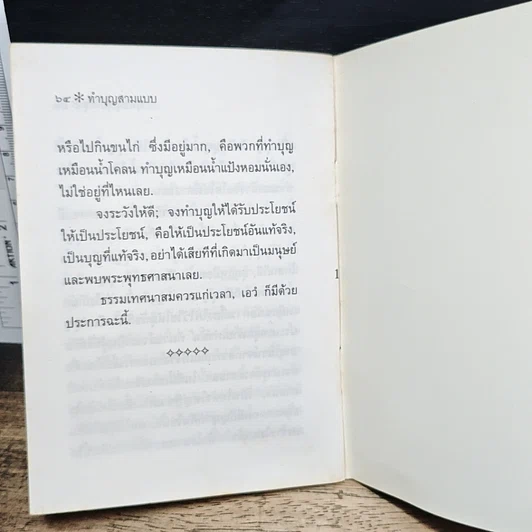 ๖๔ * ทำบุญสามแบบ
หรือไปกินขนไก่ ซึ่งมีอยู่มาก, คือพวกที่ทำบุญ
เหมือนน้ำโคลน ทำบุญเหมือนน้ำแป้งหอมนั่นเอง,
ไม่ใช่อยู่ที่ไหนเลย.
จงระวังให้ดี; จงทำบุญให้ได้รับประโยชน์
ให้เป็นประโยชน์, คือให้เป็นประโยชน์อันแท้จริง,
เป็นบุญที่แท้จริง, อย่าได้เสียทีที่เกิดมาเป็นมนุษย์
และพบพระพุทธศาสนาเลย.
ธรรมเทศนาสมควรแก่เวลา, เอวํ ก็มีด้วย
ประการฉะนี้.